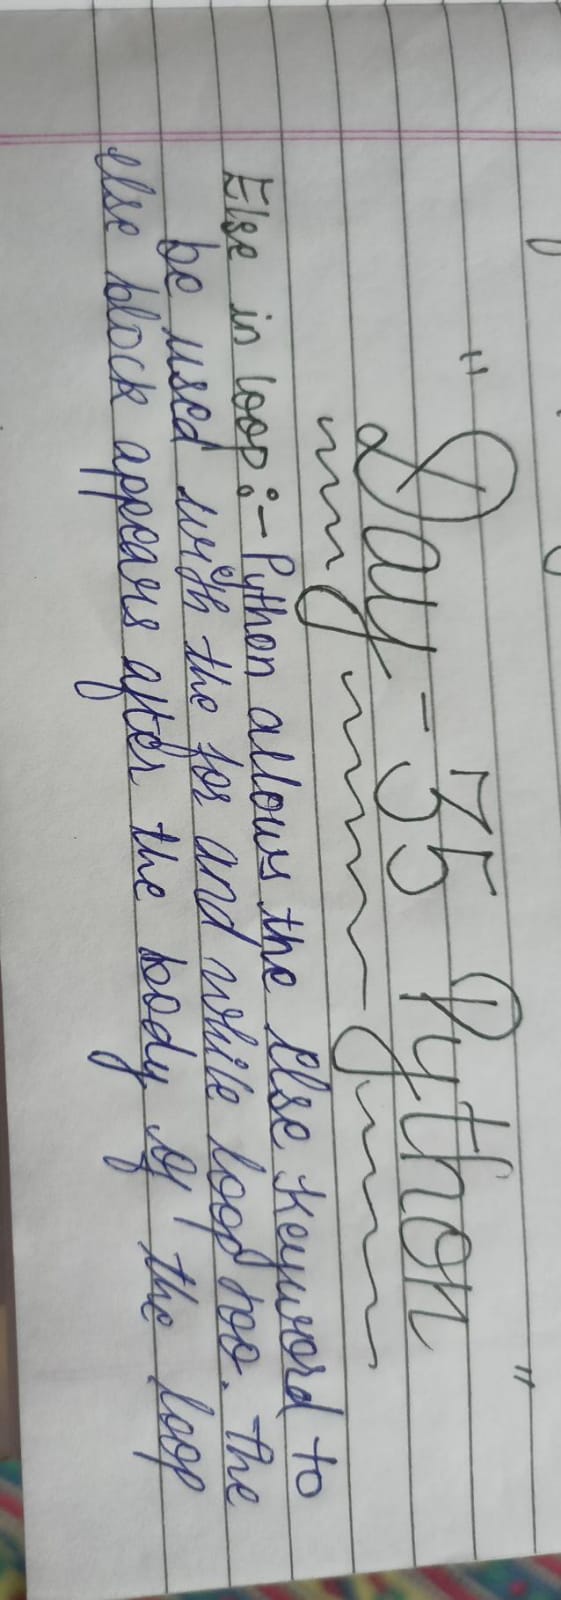 " Day - 35 Python "
Else in loop :- Python allows the else keyword to
be used with the for and while loop too. the
else block appears after the body of the loop